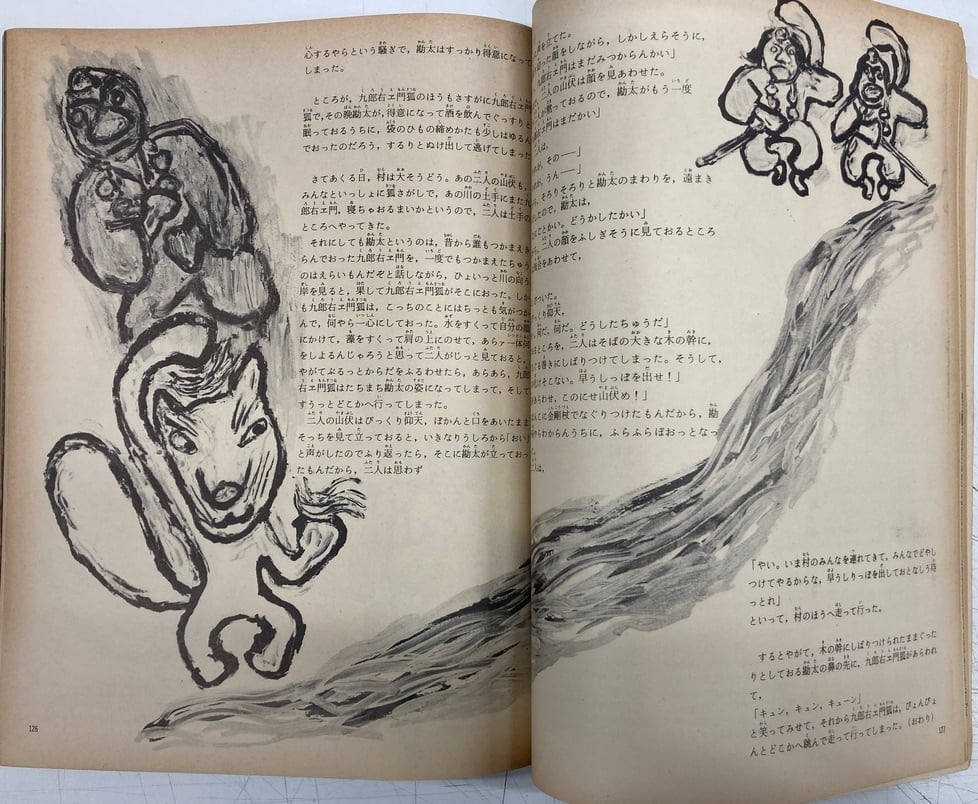 心するやらという騒ぎで，勘太はすっかり得意になって
しまった。
ところが，九郎右ェ門狐のほうもさすがに九郎右ェ門
狐で，その晩勘太が，得意になって酒を飲んでぐっすりと
眠っておるうちに，袋のひもの締めかたも少しはゆるん
でおったのだろう，するりとぬけ出して逃げてしまった
さてあくる日，村は大そうどう。あの二人の山伏も，
みんなといっしょに狐さがしで，あの川の土手にまた九
郎右ェ門，寝ちゃおるまいかというので，二人は土手の
ところへやってきた。
それにしても勘太というのは，昔から誰もつかまえき
らんでおった九郎右ェ門を，一度でもつかまえたちゅう
のはえらいもんだぞと話しながら，ひょいっと川の向う
岸を見ると，果して九郎右ェ門狐がそこにおった。しか
も九郎右ェ門狐は，こっちのことにはちっとも気がつか
んで，何やら一心にしておった。水をすくって自分の顔
にかけて，藻をすくって肩の上にのせて，あらァ一体何
をしよるんじゃろうと思って二人がじっと見ておると，
やがてぶるっとからだをふるわせたら，あらあら，九郎
右ェ門狐はたちまち勘太の姿になってしまって，そして
すうっとどこかへ行ってしまった。
二人の山伏はびっくり仰天，ぽかんと口をあいたまま
そっちを見て立っておると，いきなりうしろから「おい」
と声がしたのでふり返ったら，そこに勘太が立っておっ
たもんだから，二人は思わず
126
を立てた。
った顔をしながら，しかしえらそうに，
郎右ェ門はまだみつからんかい」
二人の山伏は顔を見あわせた。
が黙っておるので，勘太がもう一度
右ェ門はまだかい」
二人は，
が，その――」
が，うん――」
，そろりそろりと勘太のまわりを，遠まき
したので，勘太は，
ごとかい，どうかしたかい」
，二人の顔をふしぎそうに見ておるところ
をあわせて，
づいた。
くり仰天，
何だ，何だ。どうしたちゅうだ」
るところを，二人はそばの大きな木の幹に，
る巻きにしばりつけてしまった。そうして，
そこない。早うしっぽを出せ！」
あらわせ，このにせ山伏め！」
んに金剛杖でなぐりつけたもんだから，勘
やらわからんうちに，ふらふらぼおっとなっ
二人は，
「やい。いま村のみんなを連れてきて，みんなでどやし
つけてやるからな，早うしりっぽを出しておとなしう待
っとれ」
といって，村のほうへ走って行った。
するとやがて，木の幹にしばりつけられたままぐった
りとしておる勘太の鼻の先に，九郎右ェ門狐があらわれ
て，
「キュン，キュン，キューン」
と笑ってみせて，それから九郎右ェ門狐は，ぴょんぴょ
んとどこかへ跳んで走って行ってしまった。（おわり）
127